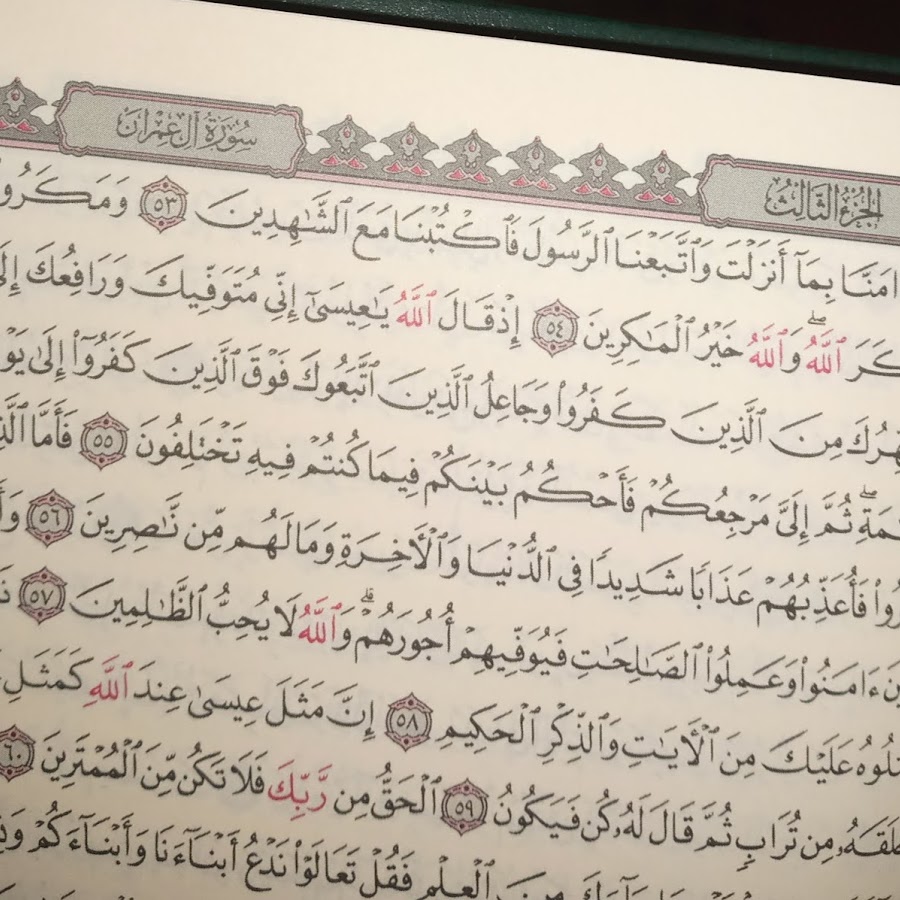 الجزء الثالث
سورة آل عمران
ءَامَنَّا بِمَآ أَنزَلْتَ وَٱتَّبَعْنَا ٱلرَّسُولَ فَٱكْتُبْنَا مَعَ ٱلشَّـٰهِدِينَ ٥٣ وَمَكَرُوا۟
ٱللَّهُۖ وَٱللَّهُ خَيْرُ ٱلْمَـٰكِرِينَ ٥٤ إِذْ قَالَ ٱللَّهُ يَـٰعِيسَىٰٓ إِنِّى مُتَوَفِّيكَ وَرَافِعُكَ إِلَىَّ
مِنَ ٱلَّذِينَ كَفَرُوا۟ وَجَاعِلُ ٱلَّذِينَ ٱتَّبَعُوكَ فَوْقَ ٱلَّذِينَ كَفَرُوٓا۟ إِلَىٰ
ثُمَّ إِلَىَّ مَرْجِعُكُمْ فَأَحْكُمُ بَيْنَكُمْ فِيمَا كُنتُمْ فِيهِ تَخْتَلِفُونَ ٥٥ فَأَمَّا
فَأُعَذِّبُهُمْ عَذَابًا شَدِيدًا فِى ٱلدُّنْيَا وَٱلْـَٔاخِرَةِ وَمَا لَهُم مِّن نَّـٰصِرِينَ ٥٦
ءَامَنُوا۟ وَعَمِلُوا۟ ٱلصَّـٰلِحَـٰتِ فَيُوَفِّيهِمْ أُجُورَهُمْۗ وَٱللَّهُ لَا يُحِبُّ ٱلظَّـٰلِمِينَ ٥٧
عَلَيْكَ مِنَ ٱلْـَٔايَـٰتِ وَٱلذِّكْرِ ٱلْحَكِيمِ ٥٨ إِنَّ مَثَلَ عِيسَىٰ عِندَ ٱللَّهِ كَمَثَلِ
مِن تُرَابٍ ثُمَّ قَالَ لَهُۥ كُن فَيَكُونُ ٥٩ ٱلْحَقُّ مِن رَّبِّكَ فَلَا تَكُن مِّنَ ٱلْمُمْتَرِينَ ٦٠
ٱلْعِلْمِ فَقُلْ تَعَالَوْا۟ نَدْعُ أَبْنَآءَنَا وَأَبْنَآءَكُمْ